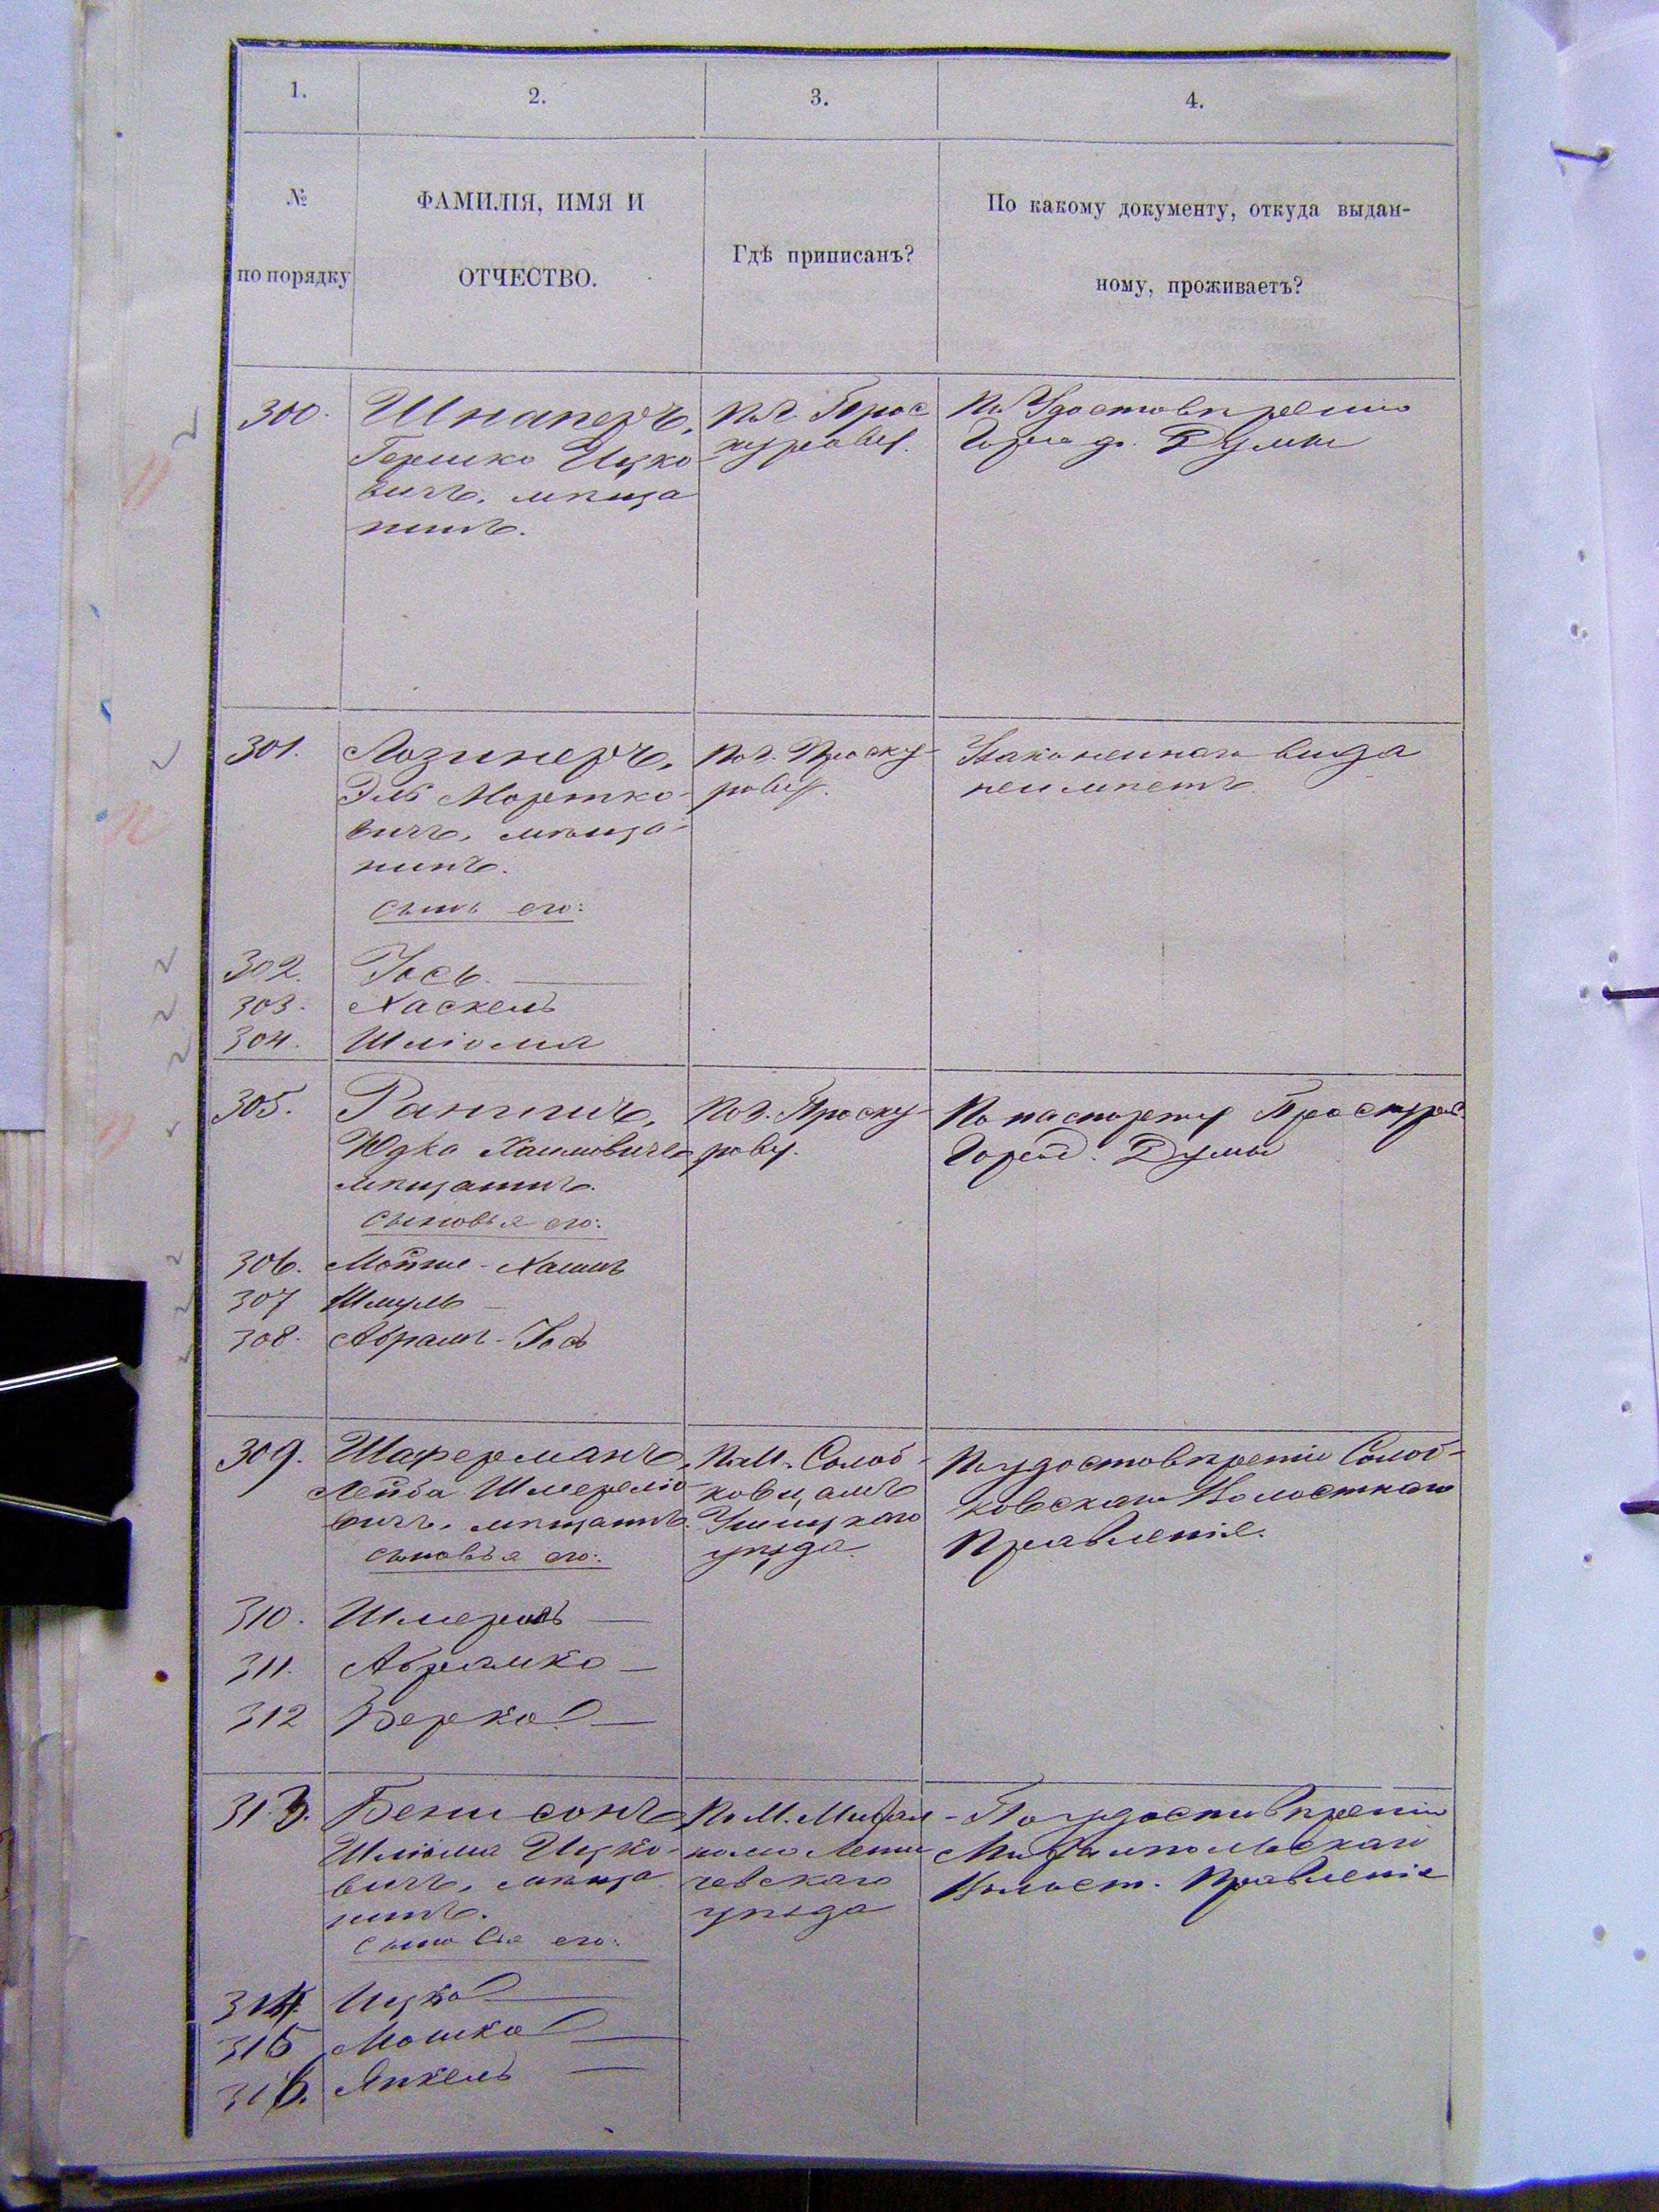 1.
2.
3.
4.
№
по порядку
ФАМИЛІЯ, ИМЯ И
ОТЧЕСТВО.
Гдѣ приписанъ?
По какому документу, откуда выдан-
ному, проживаетъ?
300.
Шнаперъ,
Гершко Ицко
вичъ, мѣща
нинъ.
По г. Прос
курову.
По Удостовѣренію
Город. Думы
301.
Лозинеръ,
Эль Мортко-
вичъ, мѣща-
нинъ.
сынъ его:
По г. Проску-
рову.
Узаконеннаго вида
неимѣетъ.
302. Іось.
303. Хаскель
304. Шліома
305.
Юдко Хаимовичъ
мѣщанинъ.
сыновья его:
По г. Проску-
рову.
По паспорту Проскуров.
Город. Думы
306. Мойше-Хаимъ
307 Шмуль
308. Абрамъ-Іось
309.
Шаферманъ,
Лейба Шмерелію
вичъ, мѣщанинъ.
сыновья его:
По М. Солоб-
ковцамъ
Ушицкаго
уѣзда.
По удостовѣренію Солоб-
ковскаго Волостнаго
Правленія.
310. Шмерель
311. Абрамко
312 Берко
313.
Бенисонъ
Шліома Ицко-
вичъ, мѣща
нинъ.
сыновья его:
По М. Михал
полю Лети
чевскаго
уѣзда
По удостовѣренію
Михалпольскаго
Волост. Правленія
314. Ицко
315 Мошко
316. Янкель